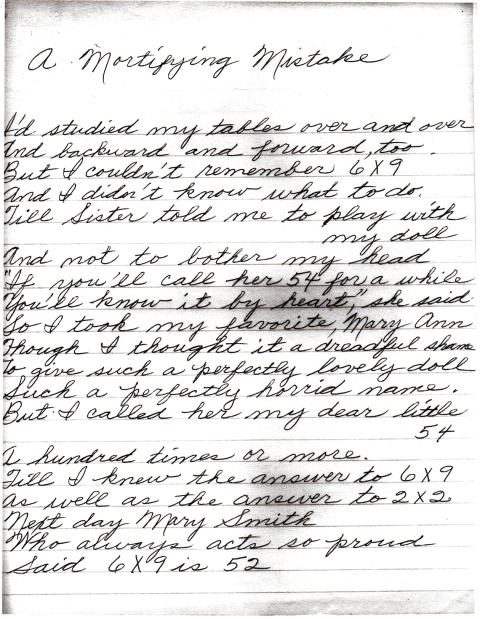 A Mortifying Mistake
I'd studied my tables over and over
And backward and forward, too.
But I couldn't remember 6 X 9
And I didn't know what to do.
Till Sister told me to play with
my doll
And not to bother my head
"If you'll call her 54 for a while
You'll know it by heart," she said.
So I took my favorite, Mary Ann
Though I thought it a dreadful shame
To give such a perfectly lovely doll
Such a perfectly horrid name.
But I called her my dear little
54
A hundred times or more.
Till I knew the answer to 6 X 9
as well as the answer to 2 X 2
Next day Mary Smith
Who always acts so proud
Said 6 X 9 is 52